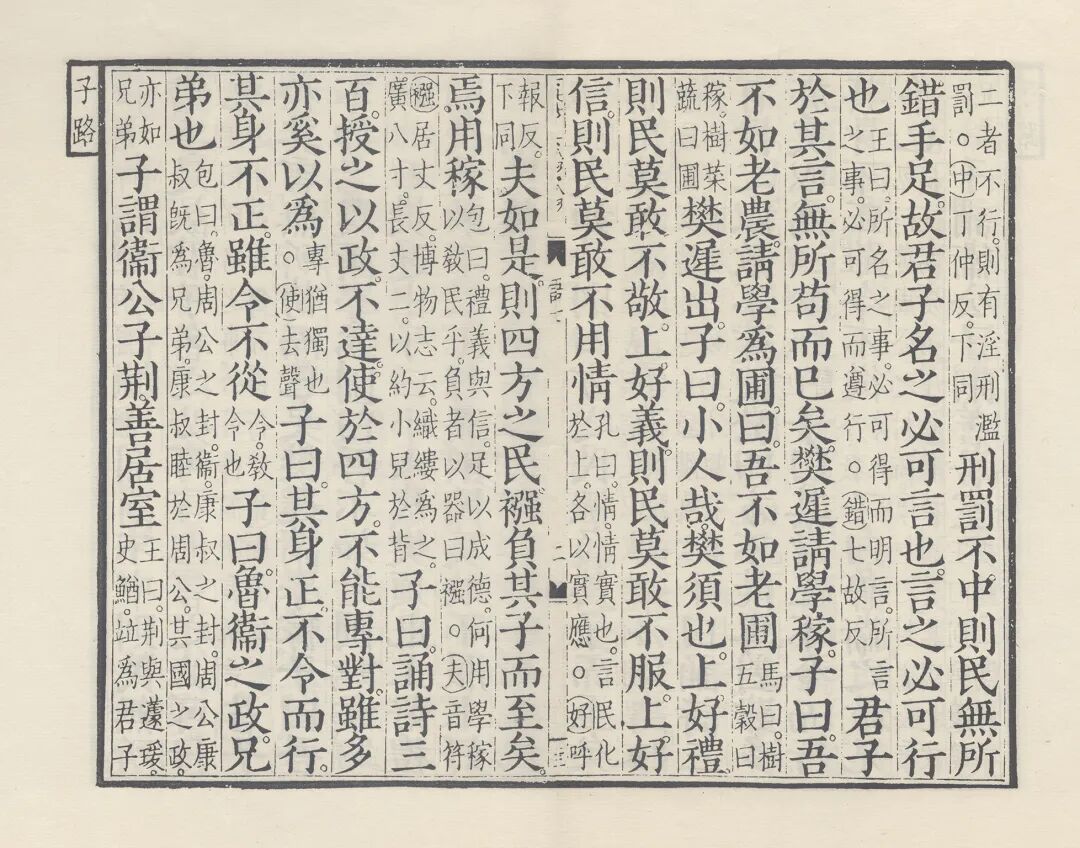 二者不行。則有淫刑濫
罰。中丁仲反。下同
刑罰不中則民無所
錯手足。故君子名之必可言也。言之必可行
也
王曰。所名之事。必可得而明言。所言
之事。必可得而遵行。錯七故反
君子
於其言。無所苟而已矣。樊遲請學稼。子曰吾
不如老農。請學爲圃。曰。吾不如老圃
馬曰。樹
五穀曰
稼。樹菜
蔬曰圃
樊遲出。子曰。小人哉。樊須也。上好禮。
則民莫敢不敬。上好義。則民莫敢不服。上好
信。則民莫敢不用情
孔曰。情。情實也。言民化
於上。各以實應。好呼
報反。
下同
夫如是。則四方之民。襁負其子而至矣。
焉用稼
包曰。禮義與信。足以成德。何用學稼
以教民乎。負者以器曰襁。夫音符
襁居丈反。博物志云。織縷爲之。
廣八寸。長丈二。以約小兒於背
子曰。誦詩三
百。授之以政。不達。使於四方。不能專對。雖多
亦奚以爲
專猶獨也
。使去聲
子曰。其身正。不令而行。
其身不正。雖令不從
令。教
令也
子曰。魯衞之政。兄
弟也
包曰。魯。周公之封。衞。康叔之封。周公康
叔旣爲兄弟。康叔睦於周公。其國之政。
亦如
兄弟
子謂衞公子荆。善居室
王曰。荆與蘧瑗。
史鰌。竝爲君子
子路